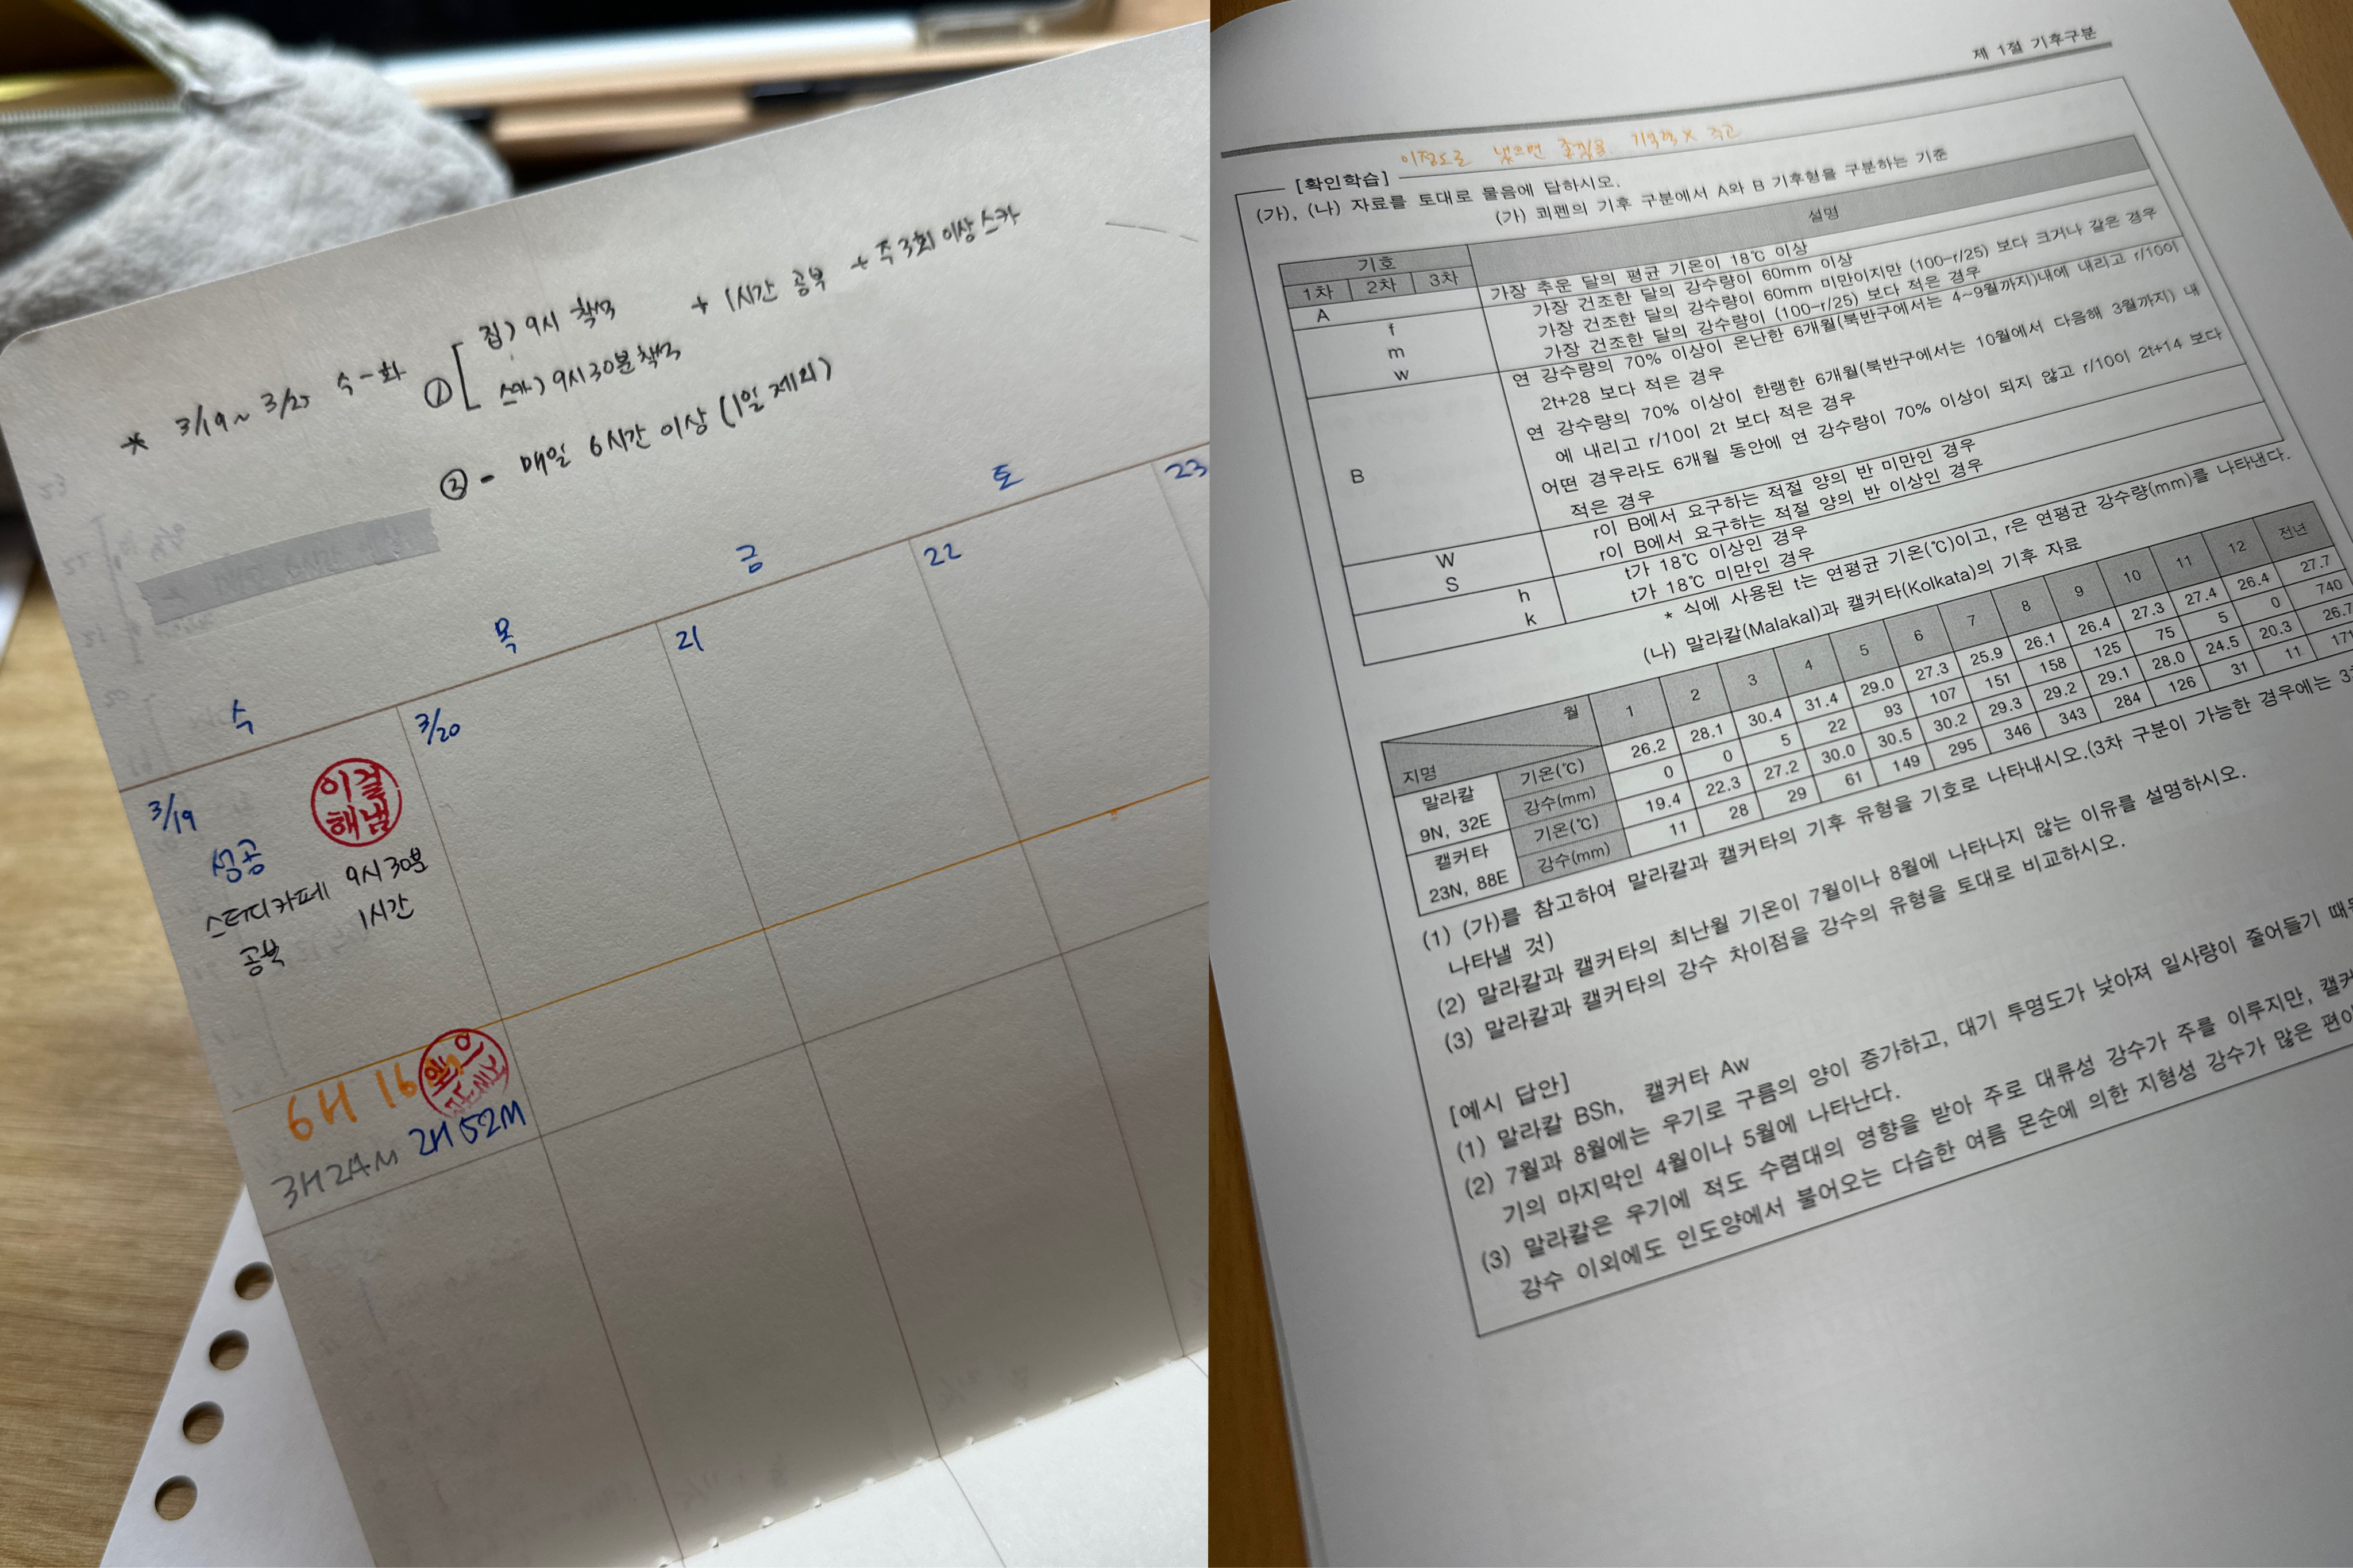 * 3/19~ 3/25 수-화 ① 집) 9시 착석 + 1시간 공부 + 주3회 이상 스카
스카) 9시30분 착석
② - 매일 6시간 이상 (1일 제외)
수 목 금 토
3/19 3/20 21 22 23
이걸
해냄
성공
스터디카페 9시 30분
공부 1시간
6H 16
3H 24M 2H 52M
제 1절 기후구분
이정도로 냈으면 좋겠음
[확인학습]
(가), (나) 자료를 토대로 물음에 답하시오.
(가) 쾨펜의 기후 구분에서 A와 B 기후형을 구분하는 기준
기호 설명
1차 2차 3차
A 가장 추운 달의 평균 기온이 18℃ 이상
f 가장 건조한 달의 강수량이 60mm 이상
m 가장 건조한 달의 강수량이 60mm 미만이지만 (100-r/25) 보다 크거나 같은 경우
w 가장 건조한 달의 강수량이 (100-r/25) 보다 적은 경우
B 연 강수량의 70% 이상이 온난한 6개월(북반구에서는 4~9월까지)내에 내리고 r/10이
2t+28 보다 적은 경우
연 강수량의 70% 이상이 한랭한 6개월(북반구에서는 10월에서 다음해 3월까지) 내
에 내리고 r/10이 2t 보다 적은 경우
어떤 경우라도 6개월 동안에 연 강수량이 70% 이상이 되지 않고 r/10이 2t+14 보다
적은 경우
W r이 B에서 요구하는 적절 양의 반 미만인 경우
S r이 B에서 요구하는 적절 양의 반 이상인 경우
h t가 18℃ 이상인 경우
k t가 18℃ 미만인 경우
* 식에 사용된 t는 연평균 기온(℃)이고, r은 연평균 강수량(mm)를 나타낸다.
(나) 말라칼(Malakal)과 캘커타(Kolkata)의 기후 자료
지명 월 1 2 3 4 5 6 7 8 9 10 11 12 전년
말라칼 9N, 32E 기온(℃) 26.2 28.1 30.4 31.4 29.0 27.3 25.9 26.1 26.4 27.3 27.4 26.4 27.7
강수(mm) 0 0 5 22 93 107 151 158 125 75 5 0 740
캘커타 23N, 88E 기온(℃) 19.4 22.3 27.2 30.0 30.5 30.2 29.3 29.2 29.1 28.0 24.5 20.3 26.7
강수(mm) 11 28 29 61 149 295 346 343 284 126 31 11
(1) (가)를 참고하여 말라칼과 캘커타의 기후 유형을 기호로 나타내시오.(3차 구분이 가능한 경우에는 3
나타낼 것)
(2) 말라칼과 캘커타의 최난월 기온이 7월이나 8월에 나타나지 않는 이유를 설명하시오.
(3) 말라칼과 캘커타의 강수 차이점을 강수의 유형을 토대로 비교하시오.
[예시 답안]
(1) 말라칼 BSh, 캘커타 Aw
(2) 7월과 8월에는 우기로 구름의 양이 증가하고, 대기 투명도가 낮아져 일사량이 줄어들기
기의 마지막인 4월이나 5월에 나타난다.
(3) 말라칼은 우기에 적도 수렴대의 영향을 받아 주로 대류성 강수가 주를 이루지만,
강수 이외에도 인도양에서 불어오는 다습한 여름 몬순에 의한 지형성 강수가 많은